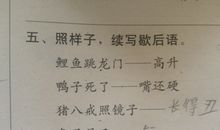 五、照样子，续写歇后语。
鲤鱼跳龙门——高升
鸭子死了——嘴还硬
猪八戒照镜子——长得丑